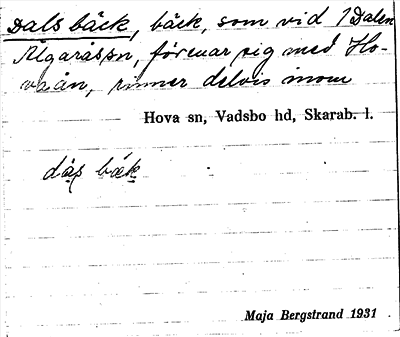 Dals bäck, bäck, som vid 1 Dalen
Älgarås sn, förenar sig med Ho-
vaån, rinner delvis inom
Hova sn, Vadsbo hd, Skarab. l.
das bæk
Maja Bergstrand 1931